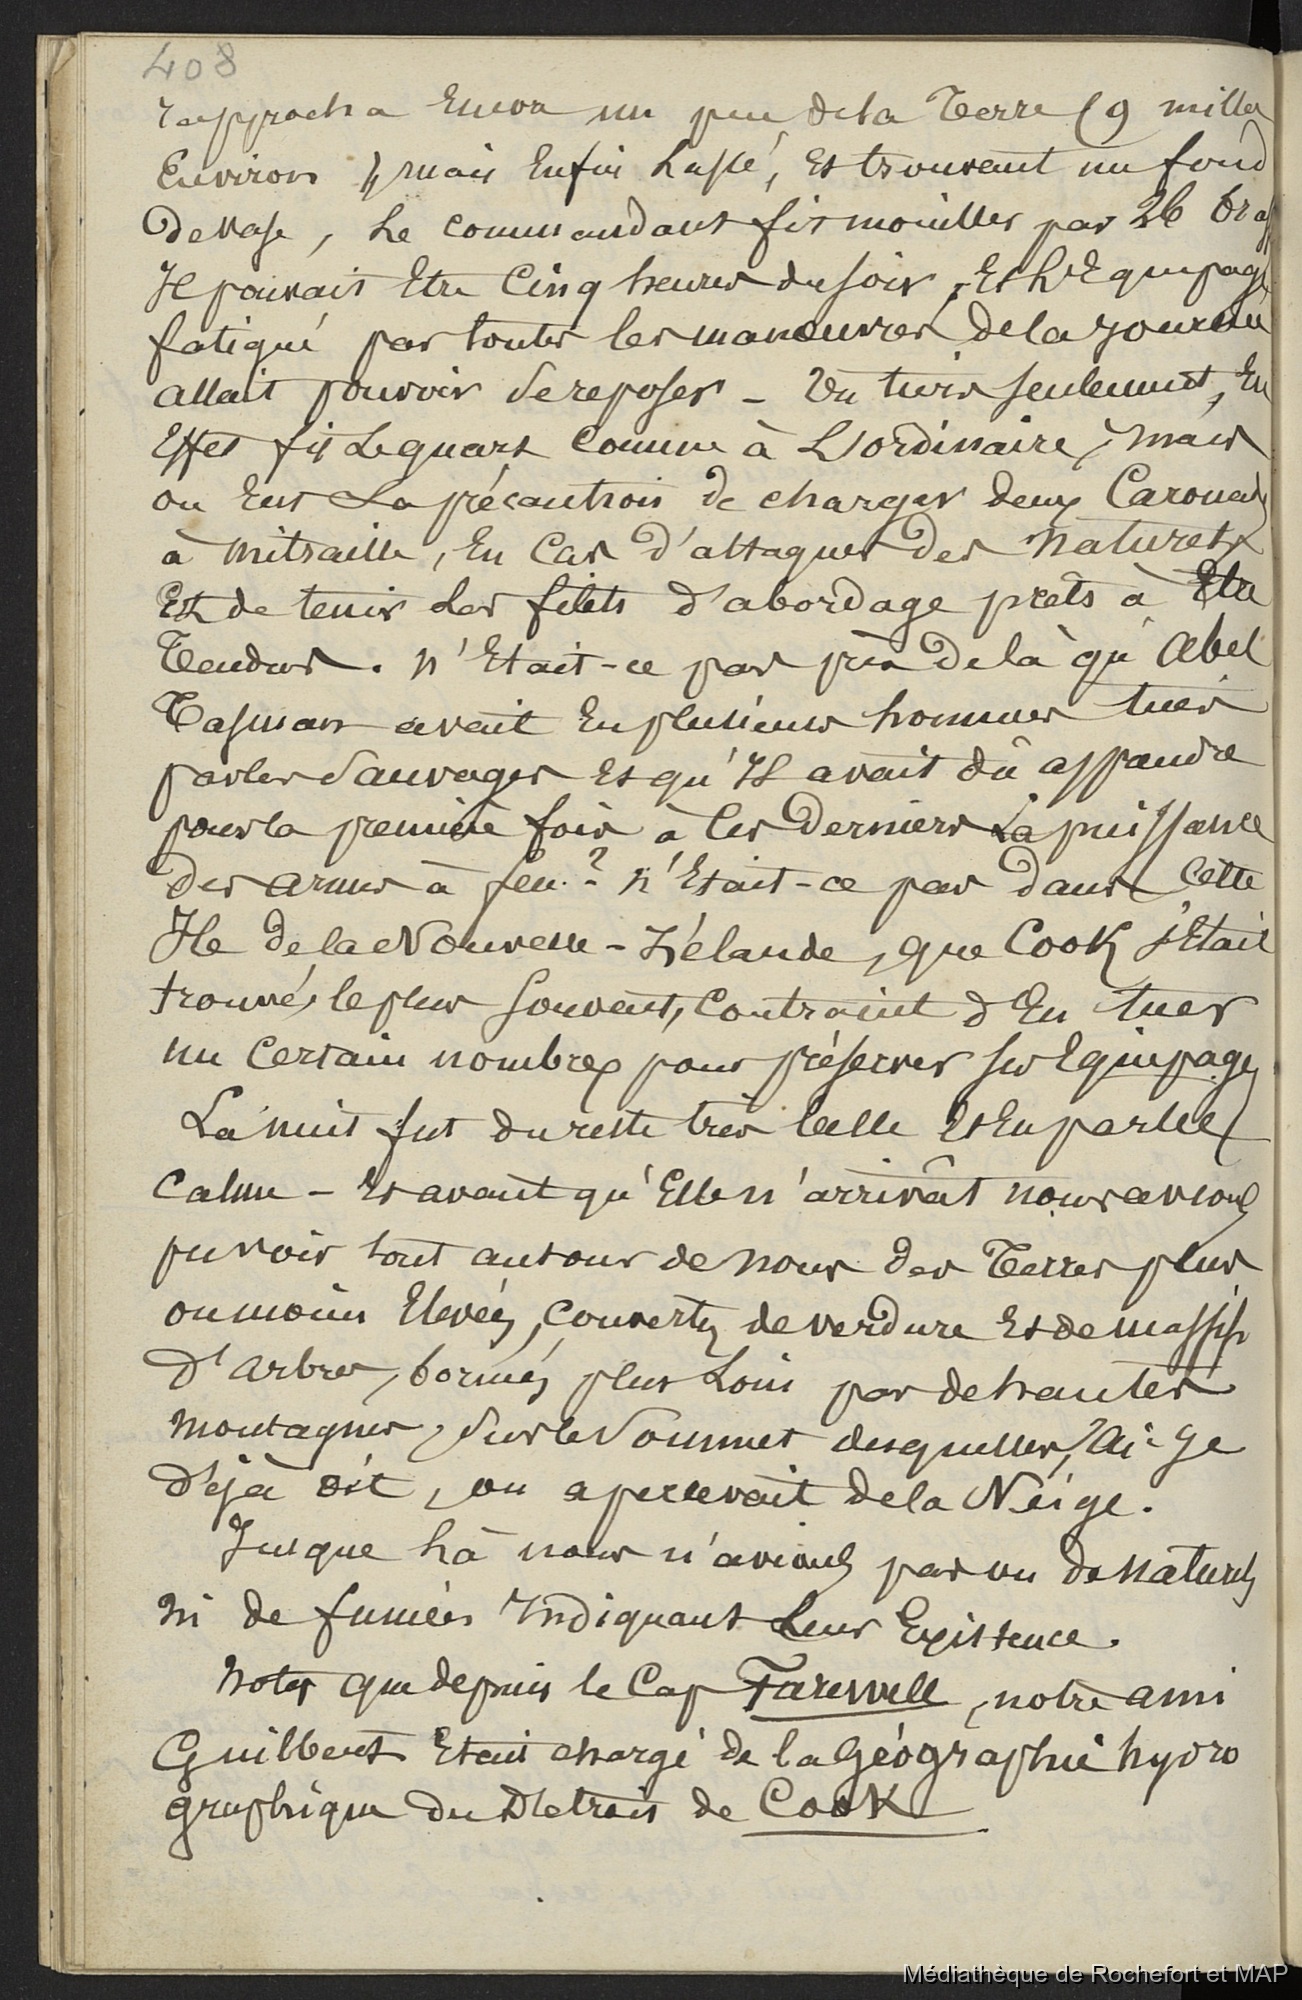 408
rapprocha Encor un peu dela Terre (9 milles
Environ) mais Enfin Lassé, Et trouvant un fond
De vase, Le commandant fit mouiller par 26 bras
Il pouvait Etre Cinq heures du soir, Et L'Equipage
fatigué par toutes les manœuvres de la journée
allait pouvoir se reposer – Un tiers seulement, En
Effet fit Le quart Comme à L'ordinaire, mais
on Eut La précaution de charger deux Caronades
à mitraille, En Cas d'attaques des Naturels
Et de tenir Les filets d'abordage prêts à Etre
Tendus. N'Etait-ce pas près de là qu'Abel
Tasman avait Eu plusieurs hommes tués
par les Sauvages Et qu'Il avait dû apprendre
pour la première fois à Ces Derniers La puissance
Des armes à feu ? N'Etait-ce pas Dans Cette
Ile de la Nouvelle-Zélande, que Cook s'Etait
trouvé, le plus Souvent, Contraint d'En tuer
un Certain nombre, pour préserver ses Equipages
La nuit fut du reste très belle Et En partie
Calme – Et avant qu'Elle n'arrivât nous avions
pu voir tout autour de nous des Terres plus
ou moins Elevées, Couvertes de verdure Et de massifs
d'arbres, bornés plus Loin par de hautes
montagnes, Sur le Sommet desquelles, Ai-Je
déjà dit, on apercevait de la Neige.
Jusque Là nous n'avions pas vu de naturels
ni de fumées Indiquant Leur Existence.
Notez que depuis le Cap Farewell, notre ami
Guilbert Etait chargé de la Géographie hydro
graphique Du Détroit de Cook
Médiathèque de Rochefort et MAP